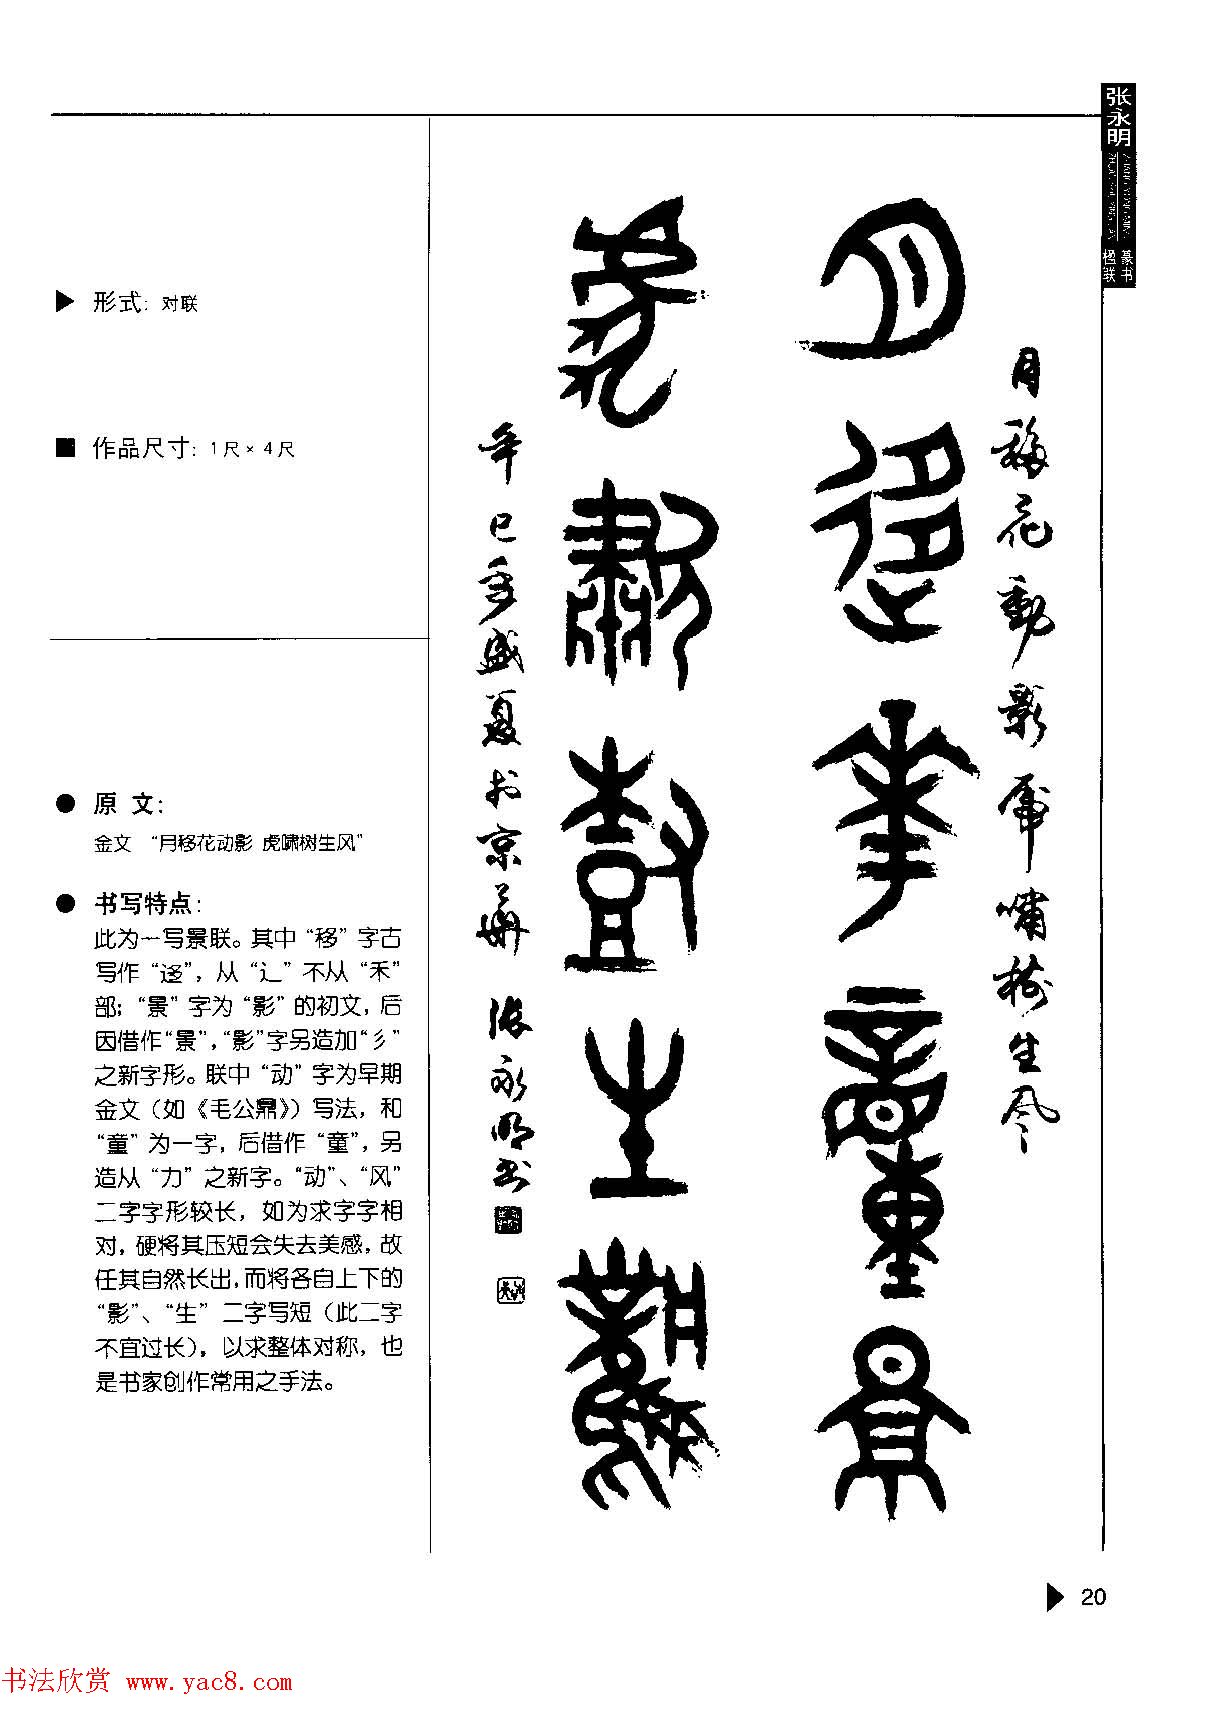 张永明
篆书
楹联
形式：对联
作品尺寸：1尺×4尺
原 文：
金文 “月移花动影 虎啸树生风”
书写特点：
此为一写景联。其中“移”字古
写作“迻”，从“辶”不从“禾”
部；“景”字为“影”的初文，后
因借作“景”，“影”字另造加“彡”
之新字形。联中“动”字为早期
金文（如《毛公鼎》）写法，和
“童”为一字，后借作“童”，另
造从“力”之新字。“动”、“风”
二字字形较长，如为求字字相
对，硬将其压短会失去美感，故
任其自然长出，而将各自上下的
“影”、“生”二字写短（此二字
不宜过长），以求整体对称，也
是书家创作常用之手法。
月移花動影虎嘯樹生风
月迻華童景
虎嘯尌生風
辛巳年盛夏於京華 张永明书
20
书法欣赏 www.yac8.com